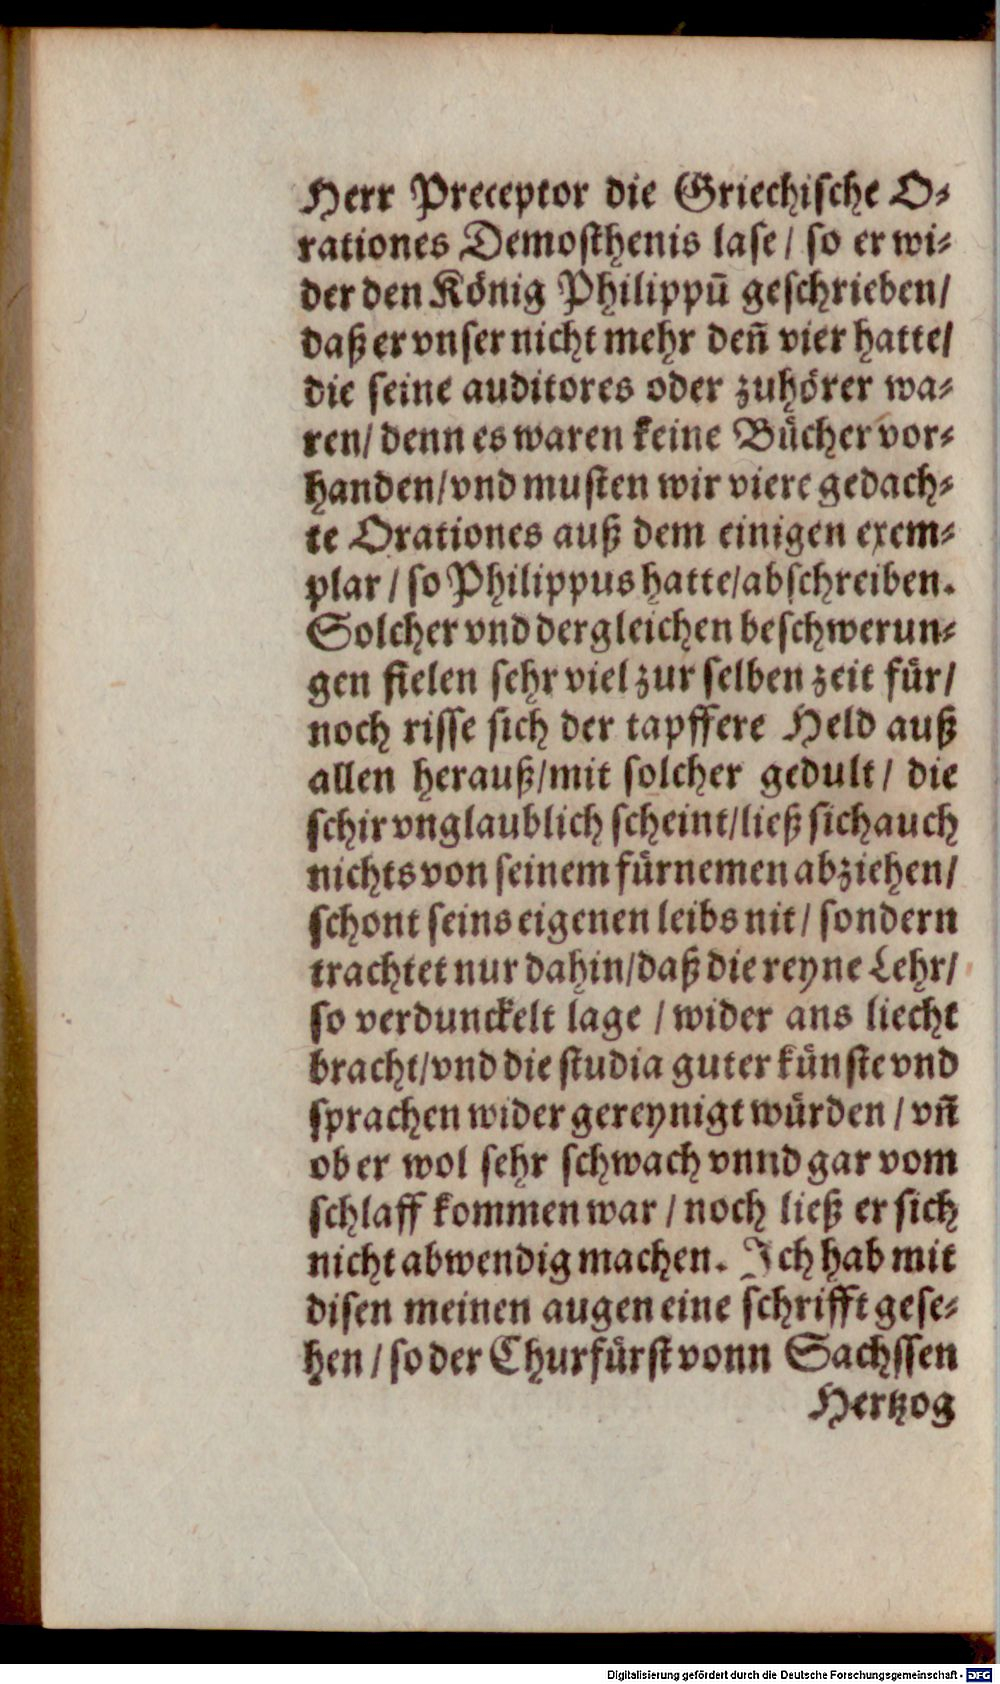 Herr Preceptor die Griechische O⸗
rationes Demosthenis lase / so er wi⸗
der den König Philippū geschrieben /
daß er vnser nicht mehr den̄ vier hatte /
die seine auditores oder zuhörer wa⸗
ren / denn es waren keine Bücher vor⸗
handen / vnd musten wir viere gedach⸗
te Orationes auß dem einigen exem⸗
plar / so Philippus hatte / abschreiben.
Solcher vnd dergleichen beschwerun⸗
gen fielen sehr viel zur selben zeit für /
noch risse sich der tapffere Held auß
allen herauß / mit solcher gedult / die
schir vnglaublich scheint / ließ sich auch
nichts von seinem fürnemen abziehen /
schont seins eigenen leibs nit / sondern
trachtet nur dahin / daß die reyne Lehr /
so verdunckelt lage / wider ans liecht
bracht / vnd die studia guter künste vnd
sprachen wider gereynigt würden / vn̄
ob er wol sehr schwach vnnd gar vom
schlaff kommen war / noch ließ er sich
nicht abwendig machen. Ich hab mit
disen meinen augen eine schrifft gese⸗
hen / so der Churfürst vonn Sachssen
Hertzog
Digitalisierung gefördert durch die Deutsche Forschungsgemeinschaft - DFG